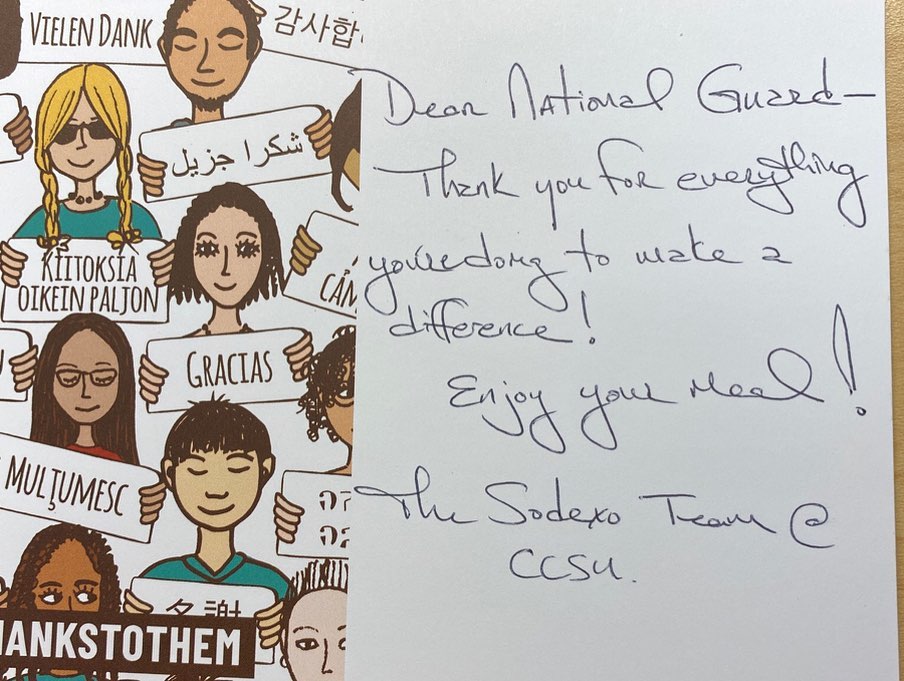 VIELEN DANK
감사합
شكرا جزيل
KIITOKSIA
OIKEIN PALJON
CẢM
GRACIAS
MULŢUMESC
תודה
רבה
多謝
HANKSTOTHEM
Dear National Guard—
Thank you for everything
you're doing to make a
difference!
Enjoy your meal!
The Sodexo Team @
CCSU.